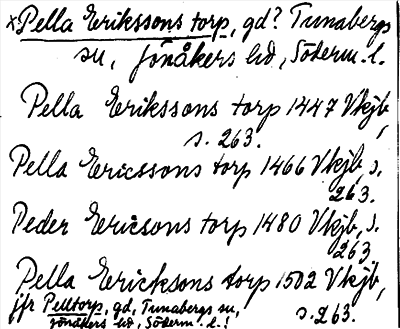 ×Pella Erikssons torp, gd? Tunabergs
su, Jönåkers hd, Söderm. l.
Pella Erikssons torp 1447 Vkjb,
s. 263.
Pella Ericssons torp 1466 Vkjb, s.
263.
Peder Ericsons torp 1480 Vkjb, s.
263.
Pella Ericksons torp 1502 Vkjb,
s. 263.
jfr Pelltorp, gd, Tunabergs su,
Jönåkers hd, Söderm. l.!